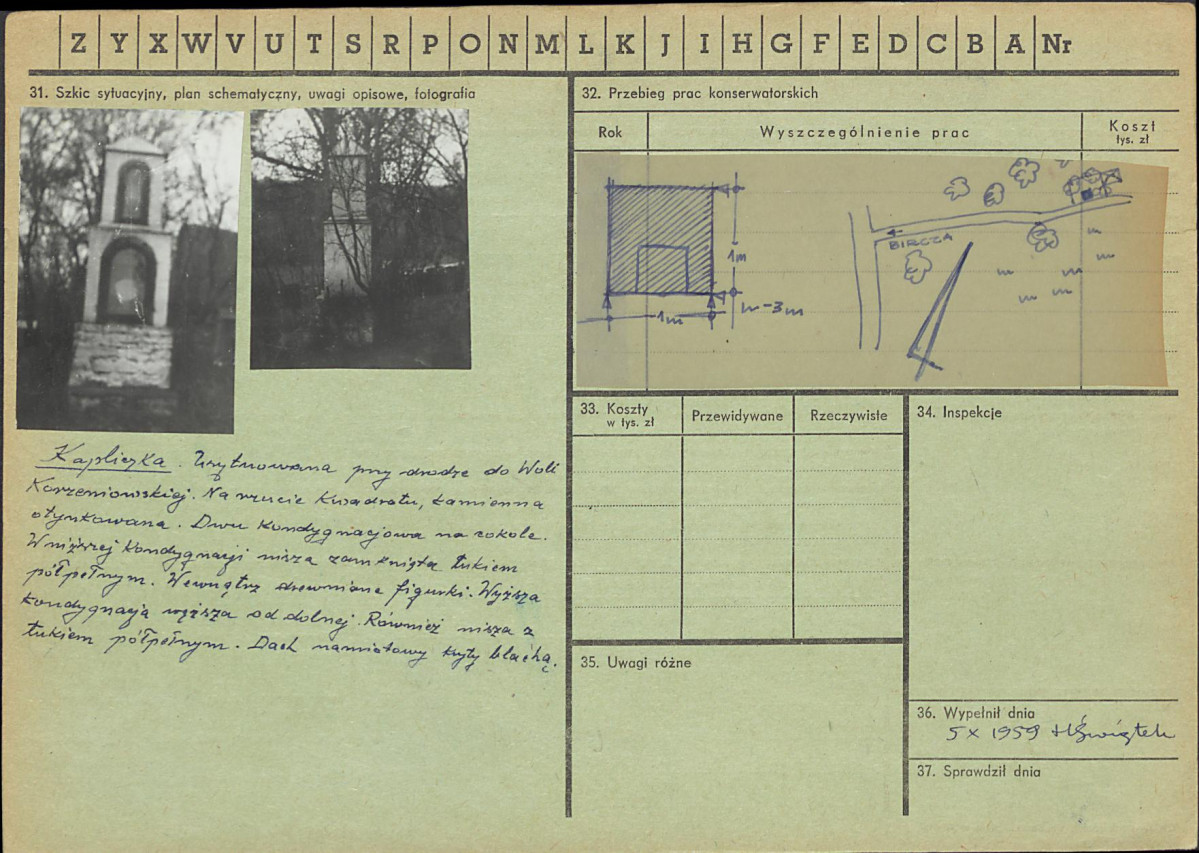 Z Y X W V U T S R P O N M L K J I H G F E D C B A Nr
31. Szkic sytuacyjny, plan schematyczny, uwagi opisowe, fotografia
Kapliczka. Usytuowana przy drodze do Woli
Korzeniowskiej. Na rzucie kwadratu, kamienna
otynkowana. Dwu kondygnacjowa na cokole.
W niższej kondygnacji nisza zamknięta łukiem
półpełnym. Wewnątrz drewniane figurki. Wyższa
kondygnacja węższa od dolnej. Również nisza z
łukiem półpełnym. Dach namiotowy kryty blachą.
32. Przebieg prac konserwatorskich
Rok
Wyszczególnienie prac
Koszt
tys. zł
1m
1m
h-3m
BIRCZA
33. Koszty
w tys. zł
Przewidywane
Rzeczywiste
34. Inspekcje
35. Uwagi różne
36. Wypełnił dnia
5 X 1959 Świątek
37. Sprawdził dnia